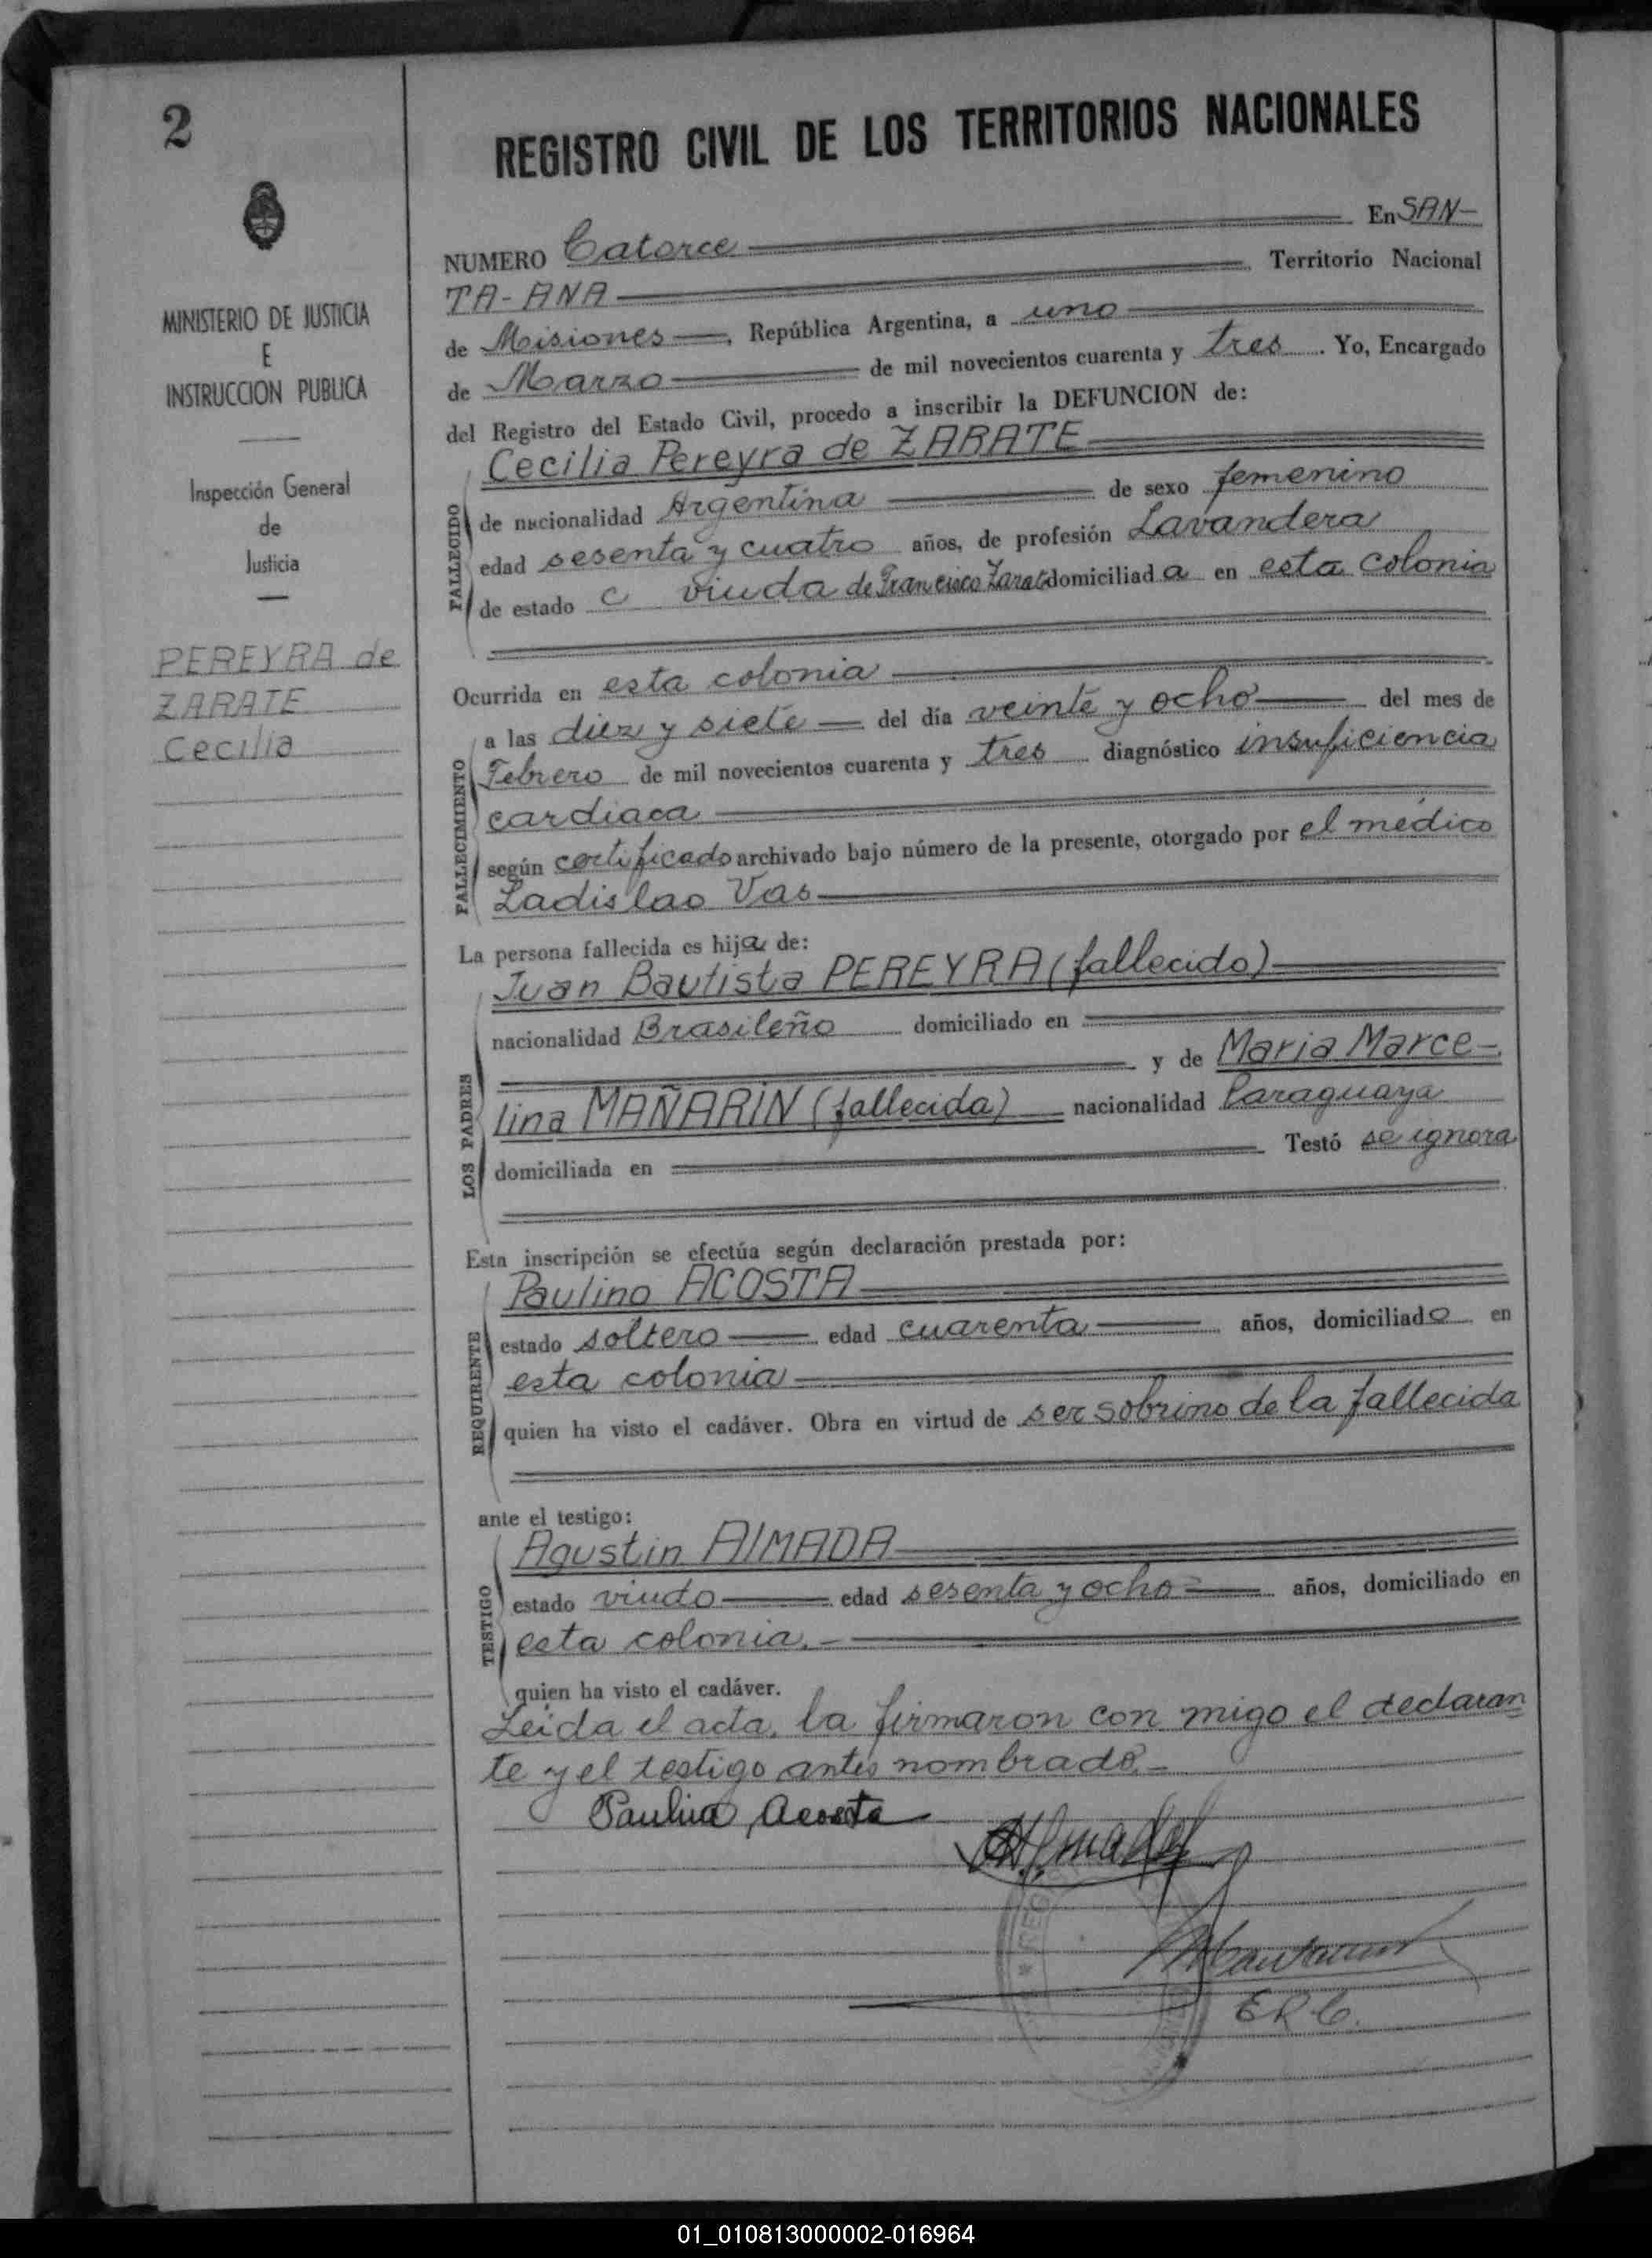 2
MINISTERIO DE JUSTICIA
E
INSTRUCCION PUBLICA
Inspección General
de
Justicia
PEREYRA de
ZARATE
Cecilia
REGISTRO CIVIL DE LOS TERRITORIOS NACIONALES
NUMERO Catorce En SAN-
TA-ANA Territorio Nacional
de Misiones, República Argentina, a uno
de Marzo de mil novecientos cuarenta y tres. Yo, Encargado
del Registro del Estado Civil, procedo a inscribir la DEFUNCION de:
FALLECIDO
Cecilia Pereyra de ZARATE
de nacionalidad Argentina de sexo femenino
edad sesenta y cuatro años, de profesión Lavandera
de estado c viuda de Francisco Zarate domiciliada en esta colonia
Ocurrida en esta colonia
FALLECIMIENTO
a las diez y siete del día veinte y ocho del mes de
Febrero de mil novecientos cuarenta y tres diagnóstico insuficiencia
cardiaca
según certificado archivado bajo número de la presente, otorgado por el médico
Ladislao Vas
La persona fallecida es hija de:
LOS PADRES
Juan Bautista PEREYRA (fallecido)
nacionalidad Brasileño domiciliado en
y de Maria Marce-
lina MAÑARIN (fallecida) nacionalidad Paraguaya
domiciliada en Testó se ignora
Esta inscripción se efectúa según declaración prestada por:
REQUIRENTE
Paulino ACOSTA
estado soltero edad cuarenta años, domiciliado en
esta colonia
quien ha visto el cadáver. Obra en virtud de ser sobrino de la fallecida
ante el testigo:
TESTIGO
Agustin AlMADA
estado viudo edad sesenta y ocho años, domiciliado en
esta colonia.-
quien ha visto el cadáver.
Leida el acta, la firmaron con migo el declaran
te y el testigo antes nombrado.-
Paulino Acosta
AAlmada
REG
E R C.
01_010813000002-016964